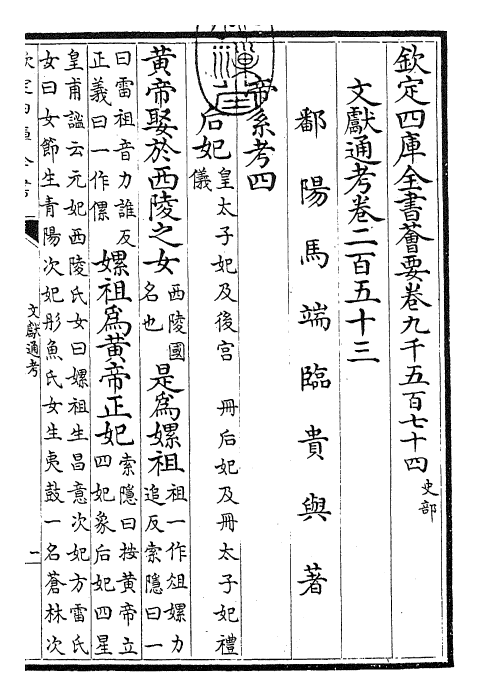 欽定四庫全書薈要卷九千五百七十四 史部
文獻通考卷二百五十三
鄱陽馬端臨貴與著
帝系考四
后妃 皇太子妃及後宮 冊后妃及冊太子妃禮儀
黃帝娶於西陵之女 西陵國名也 是為嫘祖 祖一作俎嫘力追反索隱曰一
曰雷祖音力誰反正義曰一作傫 嫘祖為黃帝正妃 索隱曰按黃帝立四妃象后妃四星
皇甫謐云元妃西陵氏女曰嫘祖生昌意次妃方雷氏
女曰女節生青陽次妃彤魚氏女生夷鼓一名蒼林次
文獻通考
一